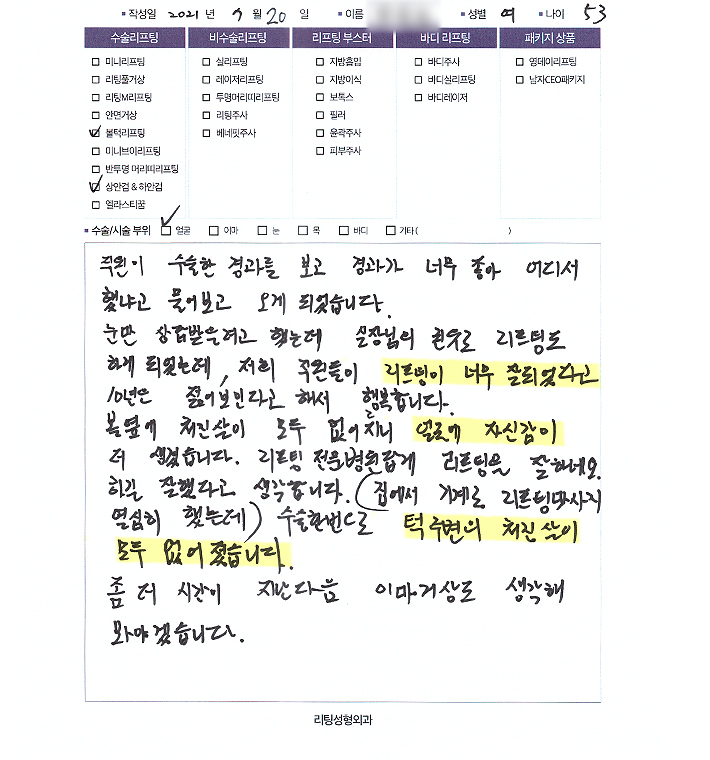 ▪ 작성일 2021 년 9 월 20 일 ▪ 이름 ▪ 성별 여 ▪ 나이 53
수술리프팅 비수술리프팅 리프팅 부스터 바디 리프팅 패키지 상품
☐ 미니리프팅 ☐ 실리프팅 ☐ 지방흡입 ☐ 바디주사 ☐ 영데이리프팅
☐ 리팅풀거상 ☐ 레이저리프팅 ☐ 지방이식 ☐ 바디실리프팅 ☐ 남자CEO패키지
☐ 리팅M리프팅 ☐ 투명머리띠리프팅 ☐ 보톡스 ☐ 바디레이저
☐ 안면거상 ☐ 리팅주사 ☐ 필러
☑ 볼턱리프팅 ☐ 베네핏주사 ☐ 윤곽주사
☐ 미니브이리프팅 ☐ 피부주사
☐ 반투명 머리띠리프팅
☑ 상안검 & 하안검
☐ 엘라스티꿈
▪ 수술/시술 부위 ☑ 얼굴 ☐ 이마 ☐ 눈 ☐ 목 ☐ 바디 ☐ 기타 ( )
직원이 수술한 경과를 보고 경과가 너무 좋아 어디서
했냐고 물어보고 오게 되었습니다.
눈만 상담받을려고 했는데 실장님의 권유로 리프팅도
하게 되었는데, 저희 직원들이 리프팅이 너무 잘되었다고
10년은 젊어보인다고 해서 행복합니다.
볼옆에 처진살이 모두 없어지니 얼굴에 자신감이
더 생겼습니다. 리프팅 전문병원답게 리프팅을 잘하네요.
하길 잘했다고 생각합니다. (집에서 기계로 리프팅마사지
열심히 했는데) 수술한번으로 턱주변의 처진살이
모두 없어졌습니다.
좀더 시간이 지난다음 이마거상도 생각해
봐야겠습니다.
리팅성형외과